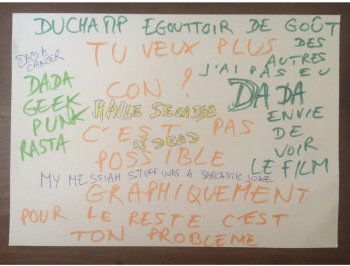 DUCHAMP EGOUTTOIR DE GOÛT
DES
AUTRES
DADA
CANCER
TU VEUX PLUS
J'AI PAS EU
DADA
GEEK
PUNK
RASTA
CON ?
DADA
HAILE SELASSIE
ENVIE
DE
VOIR
LE FILM
C'EST PAS
IS DEAD
POSSIBLE
MY MESSIAH STUFF WAS A SARCASTIC JOKE
GRAPHIQUEMENT
POUR LE RESTE C'EST
TON PROBLEME